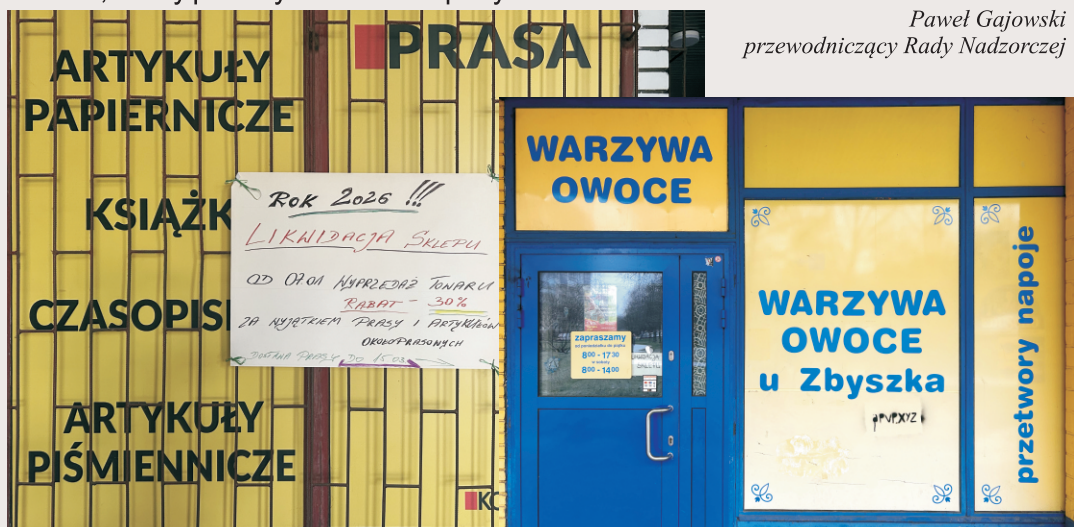 Paweł Gajowski
przewodniczący Rady Nadzorczej
ARTYKUŁY
PAPIERNICZE
PRASA
KSIĄŻK
CZASOPIS
ARTYKUŁY
PIŚMIENNICZE
ROK 2026 !!!
LIKWIDACJA SKLEPU
OD 07.01 WYPRZEDAŻ TOWARU
RABAT - 30%
ZA WYJĄTKIEM PRASY I ARTYKUŁÓW
OKOŁOPRASOWYCH
DOSTAWA PRASY DO 15.03
KC
WARZYWA
OWOCE
zapraszamy
od poniedziałku do piątku
8:00 - 17:30
w soboty
8:00 - 14:00
WARZYWA
OWOCE
u Zbyszka
przetwory napoje